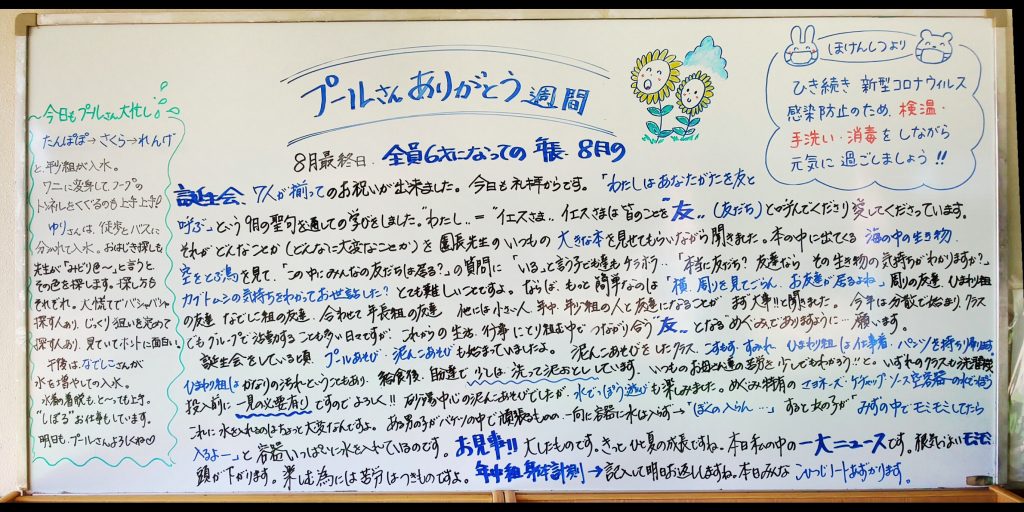 プールさんありがとう週間
ほけんしつより
ひき続き 新型コロナウィルス
感染防止のため、検温・
手洗い・消毒をしながら
元気に過ごしましょう!!
〜今日もプールさん大忙し
たんぽぽ→さくら→れんげ
と、年少組が入水。
ワニに変身して、フープの
トンネルをくぐるのも上手上手♪
ゆりさんは、徒歩とバスに
分かれて入水。おはじき探しも
先生が「みどり色〜」と言うと、
その色を探します。探し方も
それぞれ。大慌てでバシャバシャ
探す人あり、じっくり狙いを定めて
探す人あり、見ていてホントに面白い。
午後は、なでしこさんが
水を増やしての入水。
水動着脱も、と〜っても上手。
"しぼる"お仕事もしています。
明日も、プールさんよろしくね♡
8月最終日、全員6才になっての年長・8月の
誕生会、7人が揃ってのお祝いが出来ました。今日も礼拝からです。「わたしはあなたがたを友と
呼ぶ」という9月の聖句を通しての学びをしました。"わたし" = "イエスさま" イエスさまは皆のことを"友"(友だち)と呼んでくださり愛してくださっています。
それがどんなことか(どんなに大変なことか)を園長先生のいつもの大きな本を見せてもらいながら聞きました。本の中に出てくる海の中の生き物、
空をとぶ鳥を見て、"この中にみんなの友だちは居る?"の質問に「いる」と言う子ども達もチラホラ…「本当に友だち?友達なら その生き物の気持ちがわかりますか?」
カイトムシの気持ちをわかってお世話した?とても難しいことですよ。ならば、もっと簡単なのは"横、周りを見てごらん、お友達が居るよね。周りの友達、ひまわり組
の友達、なでしこ組の友達、合わせて年長組の友達、他には小さい人、年中、年少組の人と友達になることがまず大事!!と聞きました。今年は分散で始まり、クラス
でもグループで活動することも多い日々ですが、これからの生活、行事にとり組む中でつながり合う"友"となるめぐみでありますように…願います。
誕生会をしている頃、プールあそび、泥んこあそびも始まっていましたよ。泥んこあそびをしたクラス、こすもす、すみれ、ひまわり組は仕事着、パンツを持ち
ひまわり組はかなりの汚れということもあり、給食後、自達で少しは洗って泥おとししています。いつものお母さん達の苦労を少しでもわかろう!!と。いずれのクラスも洗濯機
投入前に一見の必要有りですのでよろしく!!砂場中心の泥んこあそびでしたが、水でっぽう遊びも楽しみました。めぐみ特有のマヨネーズ・ケチャップ・ソース空容器の水でっぽう
これに水を入れるのはちょっと大変なんですよ。ある男の子がバケツの中で頑張るものの、一向に容器に水は入らず→「ぼくの入らん…」すると女の子が「みずの中でモミモミしてたら
入るよー」と容器いっぱいに水を入れているのです。お見事!!大したものです。きっとひと夏の成長ですね。本日私の中の一大ニュースです。根気づよいモミモミ
頭が下がります。楽しむ為には苦労はつきものですよ。年中組身体計測→記入して明日お返ししますね。本日みんなひつじノートあずかります。